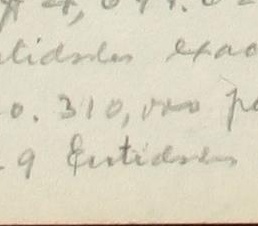 4,
tidades exac
0. 310,000 p
9 Entidades